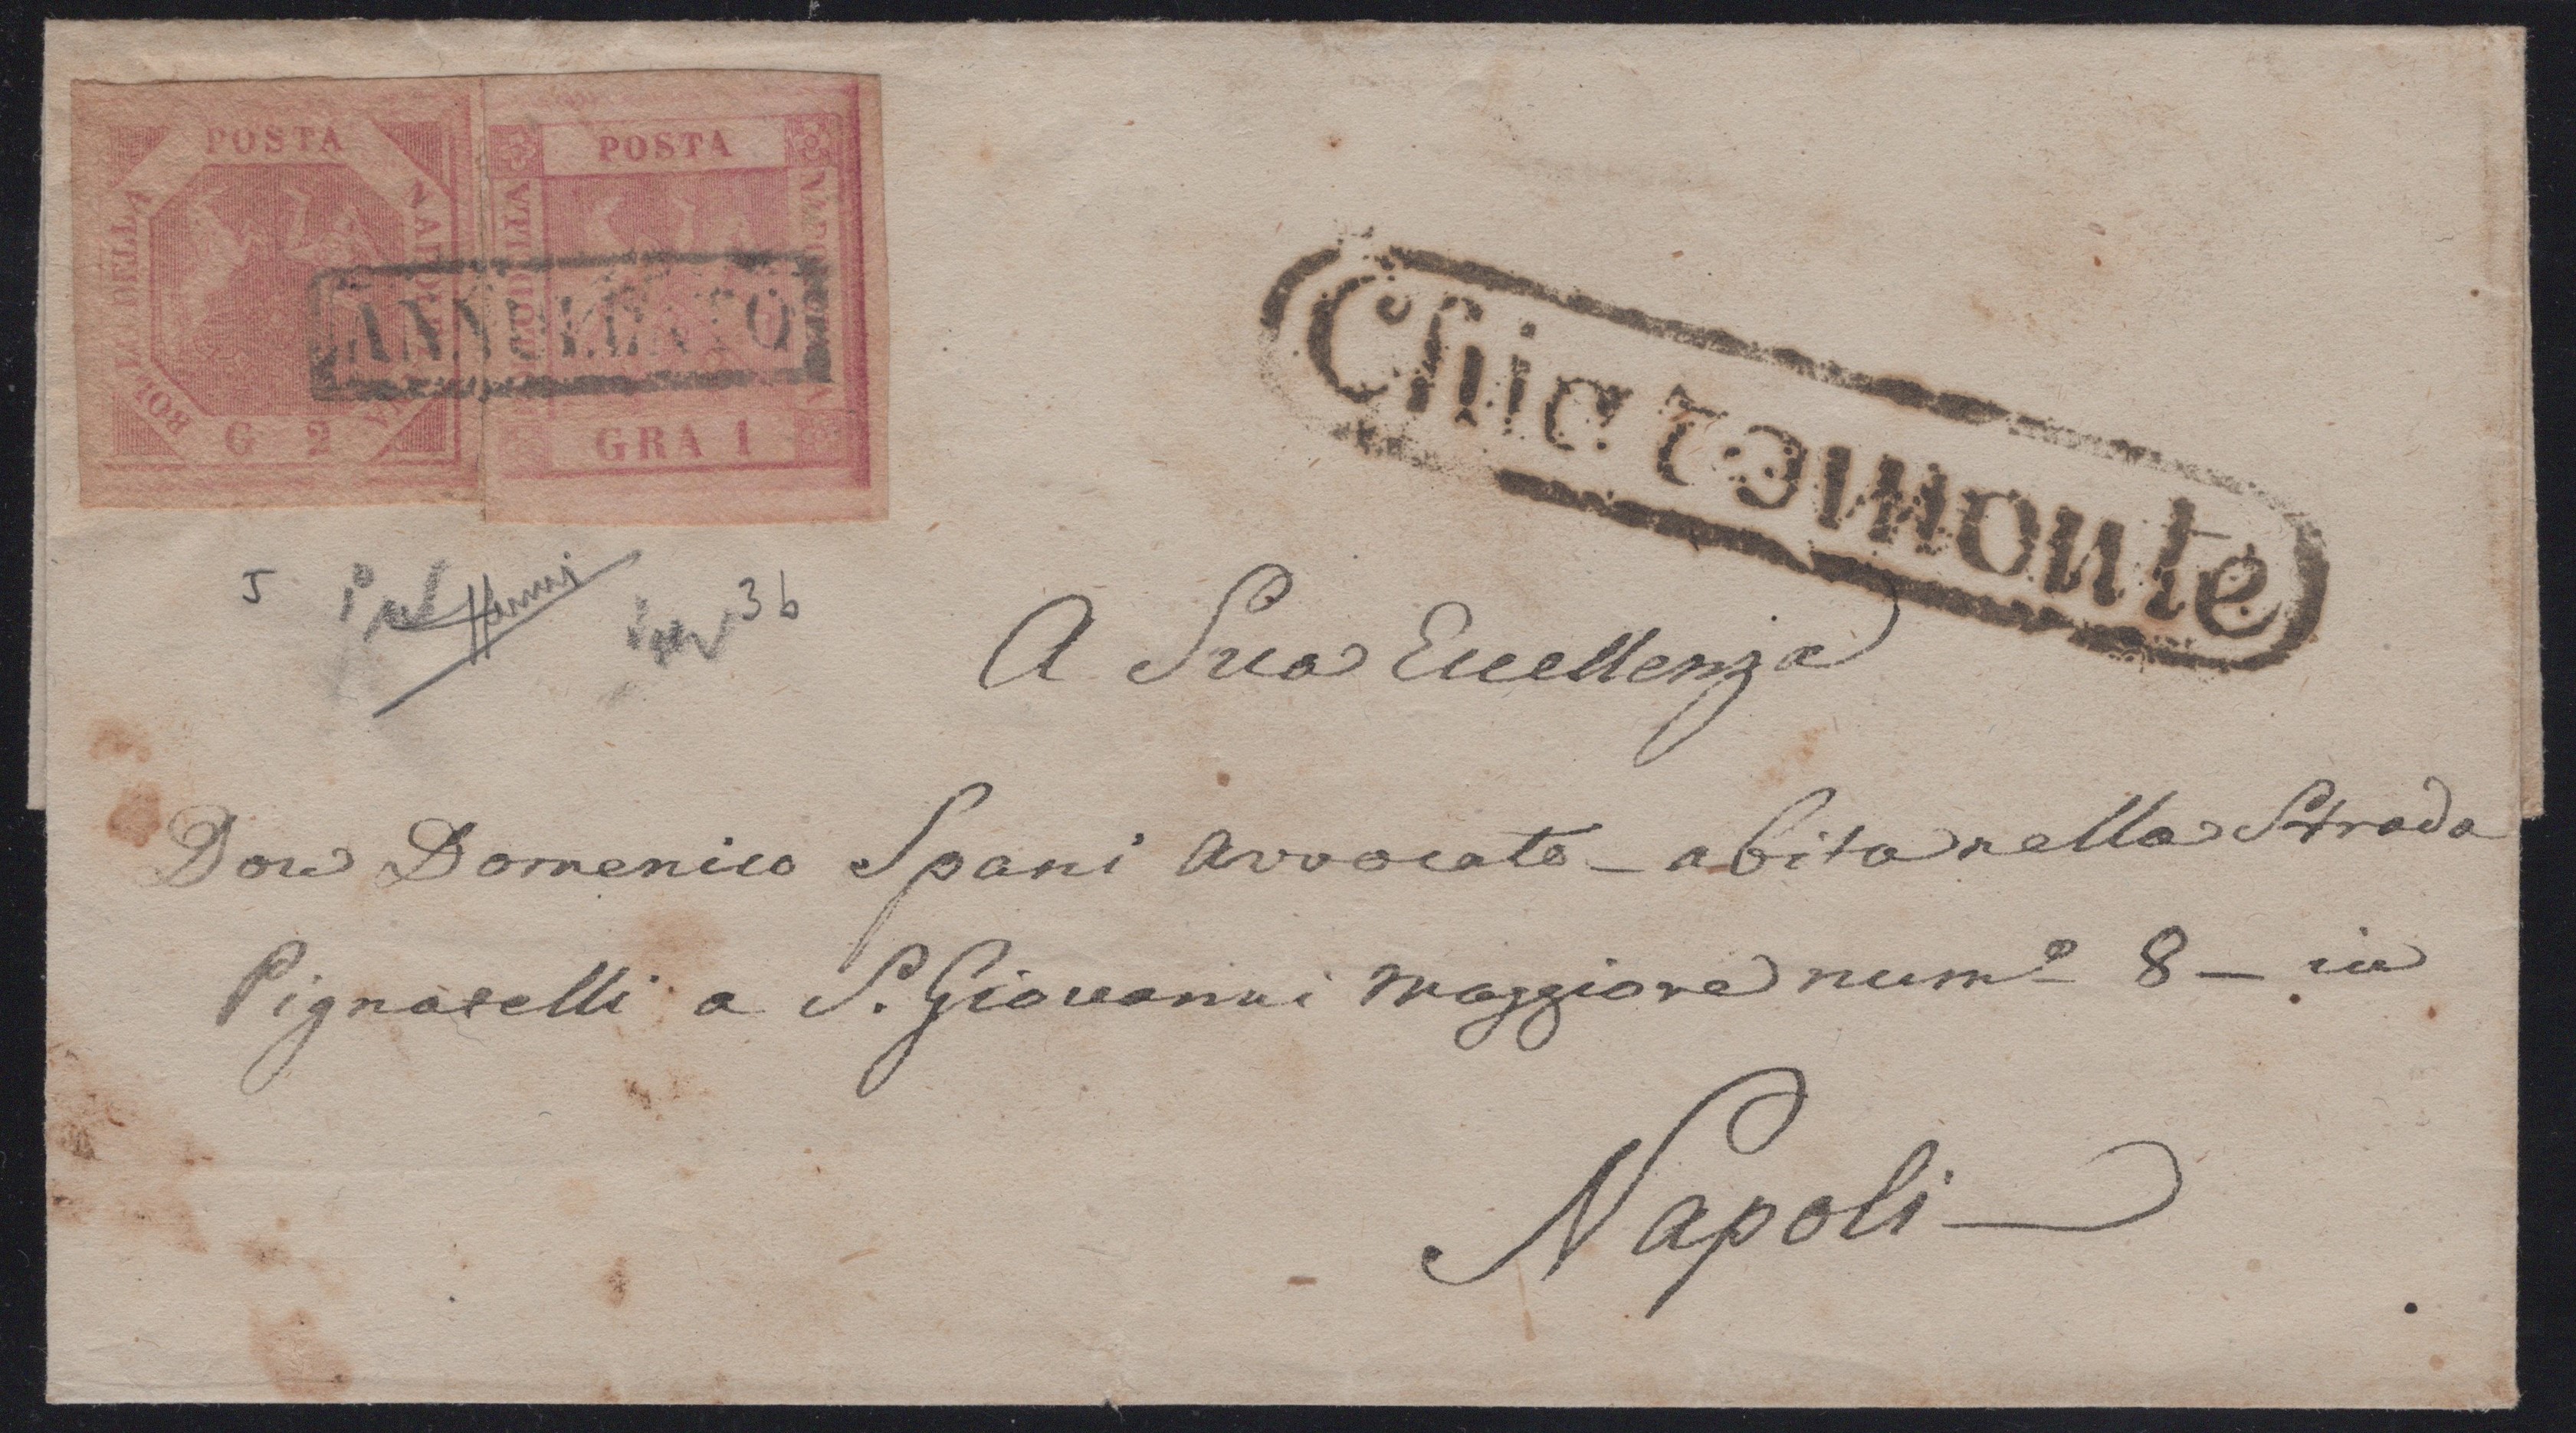 POSTA
NAPOLETANA
BOLLO DELLA
G 2
POSTA
GRA 1
ANNULLATO
Chiaromonte
5
3 b
A Sua Eccellenza
Don Domenico Spani Avvocato - abita nella Strada
Pignatelli a S. Giovanni Maggiore num.o 8 - in
Napoli